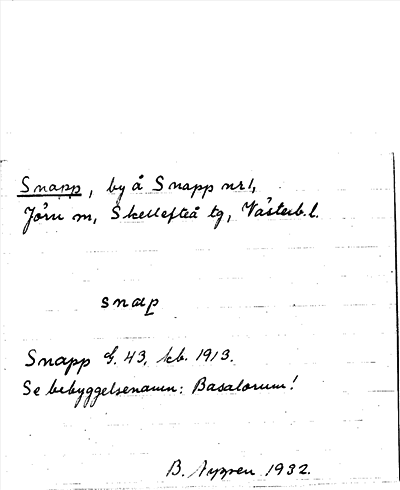 Snapp, by å Snapp nr 1,
Jörn sn, Skellefteå tg, Västerb.l.
snap
Snapp G. 43, kb. 1913.
Se bebyggelsenamn: Basatorum!
B. 1932.